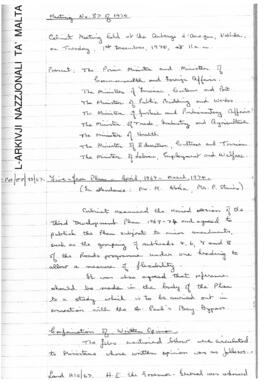 Meeting No. 37 of 1970
Cabinet Meeting held at the Auberge d'Aragon, Valletta,
on Tuesday, 1st December, 1970, at 11 a.m.
Present: The Prime Minister and Minister of
Commonwealth and Foreign Affairs.
The Minister of Finance, Customs and Port
The Minister of Public Building and Works
The Minister of Justice and Parliamentary Affairs
The Minister of Trade, Industry and Agriculture
The Minister of Health
The Minister of Education, Culture and Tourism
The Minister of Labour, Employment and Welfare
Five-Year Plan - April 1969 - March 1974
(In attendance: Mr. R. Mr. P.
Cabinet examined the revised version of the
Third Development Plan 1969-74 and agreed to
publish the Plan subject to minor amendments,
such as the grouping of subheads 4, 6, 7 and 8
of the Roads programme under one heading to
allow a measure of flexibility.
It was also agreed that reference
should be made in the body of the Plan
to a study which is to be carried out in
connection with the St Paul's Bay Bypass.
Confirmation of Written Opinion
The files mentioned below were circulated
to Ministers whose written opinion was as follows:
Land H.E. the Governor-General was advised
L-ARKIVJI NAZZJONALI TA' MALTA